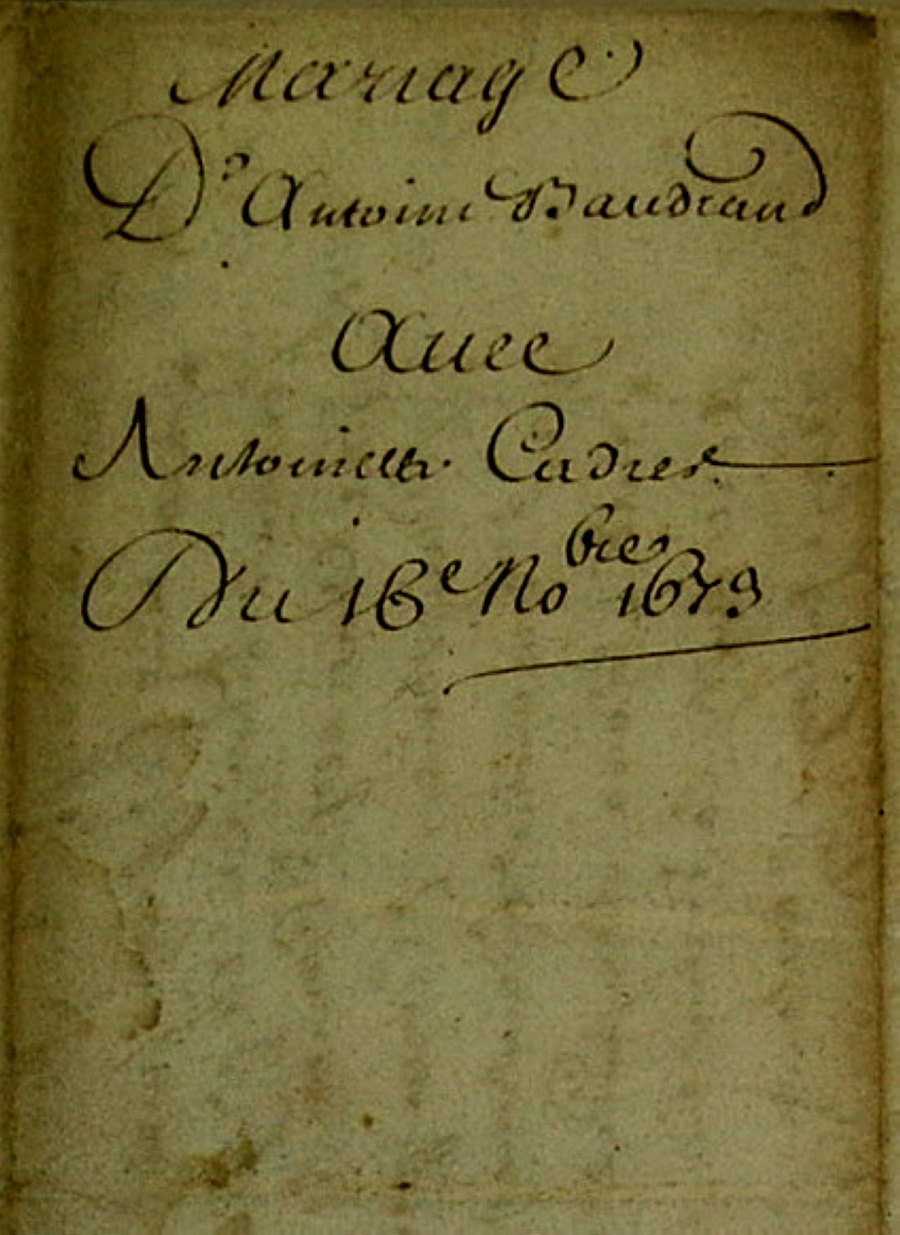 Mariage
D' Antoine Baudrand
Auec
Antoinette Cadier
Du 16e Nobre 1679